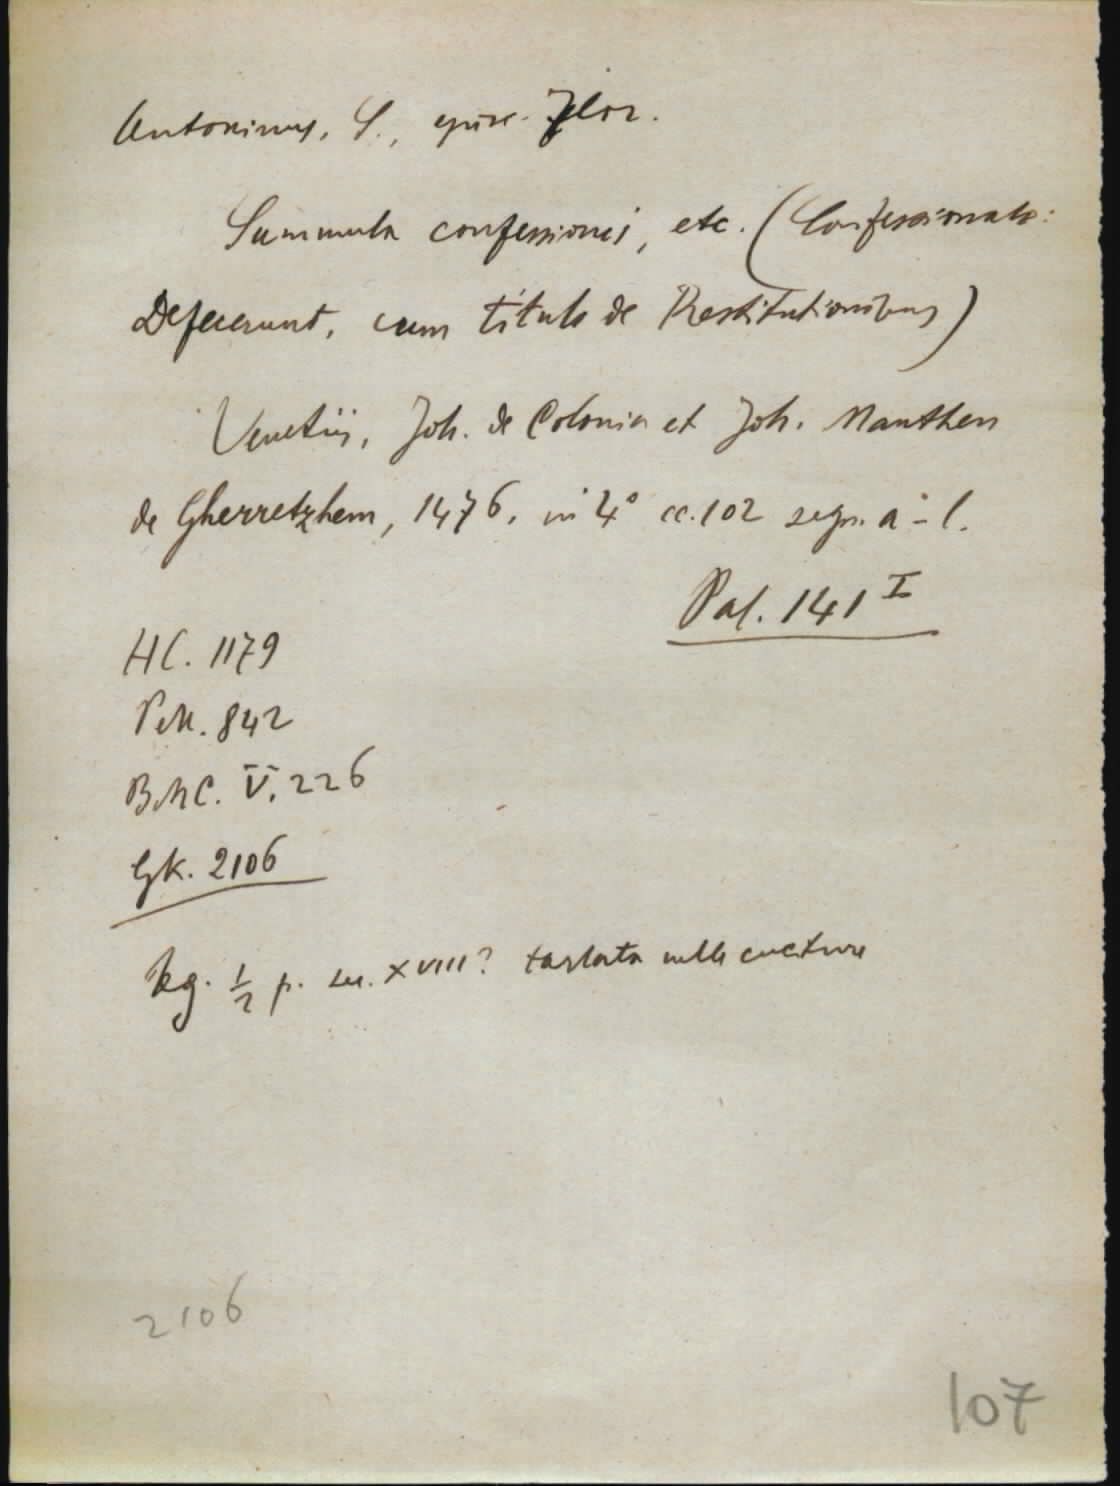 Antoninus, S., episc. Flor.
Summula confessionis, etc. (Confessionale:
Defecerunt, cum titulo de Restitutionibus)
Venetiis, Joh. de Colonia et Joh. Manthen
de Gherretzhem, 1476, in 4° cc. 102 segn. a-l.
Pal. 141 I
HC. 1179
Pell. 842
BMC. V. 226
GK. 2106
Leg. 1/2 p. sec. XVIII? tarlata nelle cuciture
2106
107